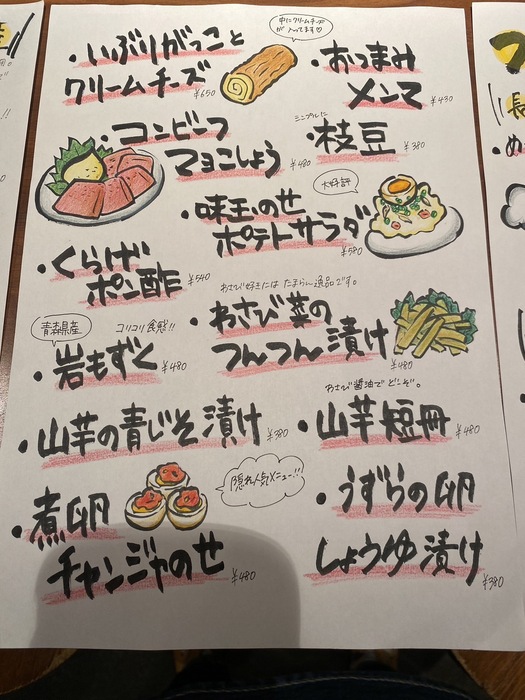 中にクリームチーズ
が入ってます♡
・いぶりがっこと
クリームチーズ
¥650
・おつまみ
メンマ
¥430
・コンビーフ
マヨこしょう
¥480
シンプルに
・枝豆
¥380
大好評
・味玉のせ
ポテトサラダ
¥580
・くらげ
ポン酢
¥540
わさび好きには たまらん逸品です。
・わさび菜の
つんつん漬け
¥480
青森県産
コリコリ食感!!
・岩もずく
¥480
・山芋の青じそ漬け
¥380
わさび醤油でどーぞ。
・山芋短冊
¥480
隠れ人気メニュー!!
・煮卵
チャンジャのせ
¥480
・うずらの卵
しょうゆ漬け
¥380
長
・め